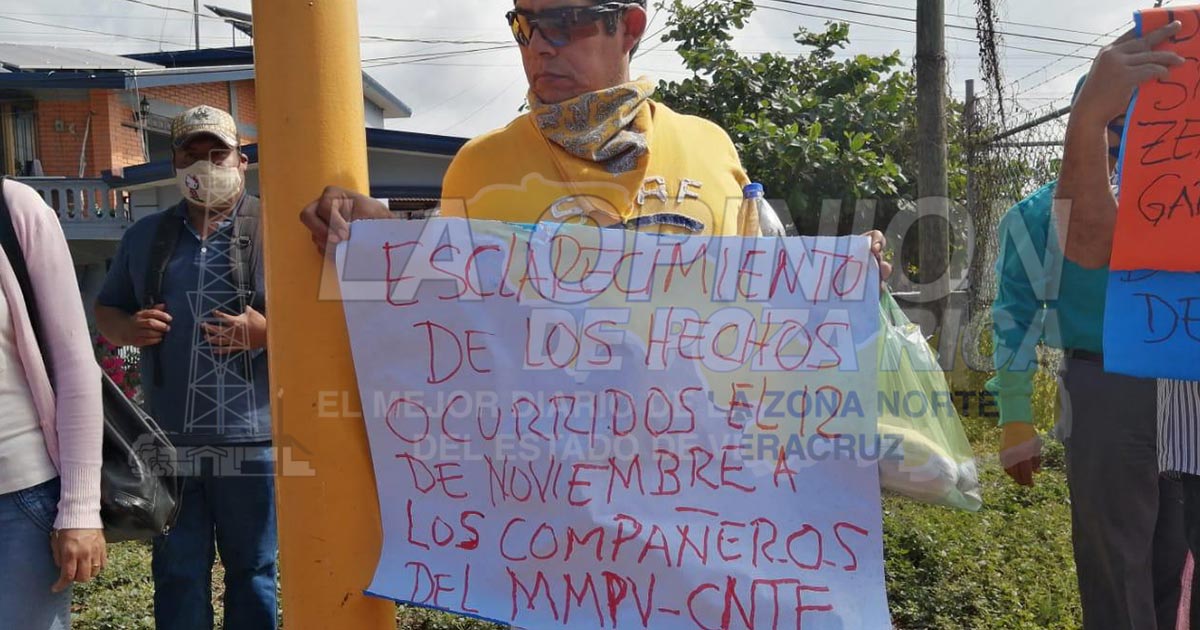 ESCLARECIMIENTO
DE LOS HECHOS
OCURRIDOS EL 12
DE NOVIEMBRE A
LOS COMPAÑEROS
DEL MMPV-CNTE
LA OPINION
DE POZA RICA
EL MEJOR DIARIO DE LA ZONA NORTE
DEL ESTADO DE VERACRUZ